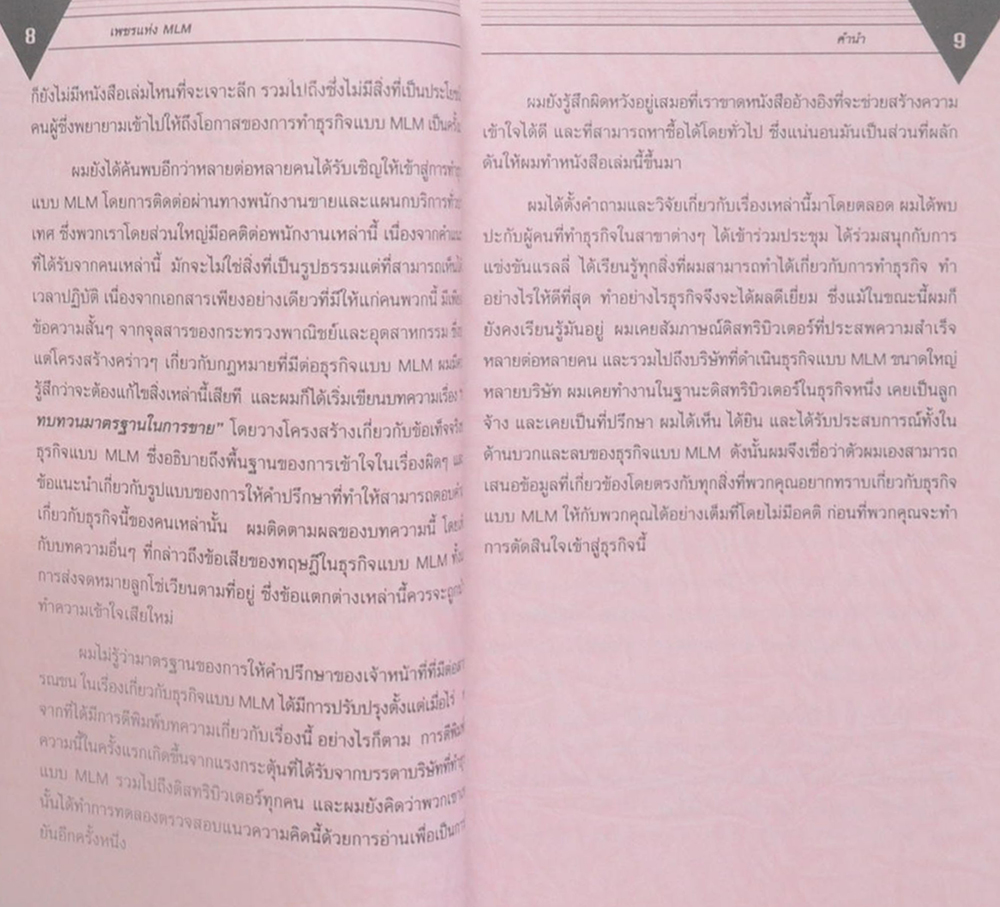 8
เพชรแห่ง MLM
ก็ยังไม่มีหนังสือเล่มไหนที่จะเจาะลึก รวมไปถึงซึ่งไม่มีสิ่งที่เป็น
คนผู้ซึ่งพยายามเข้าไปให้ถึงโอกาสของการทำธุรกิจแบบ MLM เป็นครั้ง
ผมยังได้ค้นพบอีกว่าหลายต่อหลายคนได้รับเชิญให้เข้าสู่การทำ
แบบ MLM โดยการติดต่อผ่านทางพนักงานขายและแผนกบริการ
เทศ ซึ่งพวกเราโดยส่วนใหญ่มีอคติต่อพนักงานเหล่านี้ เนื่องจาก
ที่ได้รับจากคนเหล่านี้ มักจะไม่ใช่สิ่งที่เป็นรูปธรรมแต่ที่สามารถ
เวลาปฏิบัติ เนื่องจากเอกสารเพียงอย่างเดียวที่มีให้แก่คนพวกนี้
ข้อความสั้นๆ จากจุลสารของกระทรวงพาณิชย์และอุตสาหกรรม
แต่โครงสร้างคร่าวๆ เกี่ยวกับกฎหมายที่มีต่อธุรกิจแบบ MLM
รู้สึกว่าจะต้องแก้ไขสิ่งเหล่านี้เสียที และผมก็ได้เริ่มเขียนบทความเรื่อง
ทบทวนมาตรฐานในการขาย" โดยวางโครงสร้างเกี่ยวกับ
ธุรกิจแบบ MLM ซึ่งอธิบายถึงพื้นฐานของการเข้าใจในเรื่องผิดๆ
ข้อแนะนำเกี่ยวกับรูปแบบของการให้คำปรึกษาที่ทำให้สามารถ
เกี่ยวกับธุรกิจนี้ของคนเหล่านั้น ผมติดตามผลของบทความนี้
กับบทความอื่นๆ ที่กล่าวถึงข้อเสียของทฤษฎีในธุรกิจแบบ MLM
การส่งจดหมายลูกโซ่เวียนตามที่อยู่ ซึ่งข้อแตกต่างเหล่านี้ควรจะ
ทำความเข้าใจเสียใหม่
ผมไม่รู้ว่ามาตรฐานของการให้คำปรึกษาของเจ้าหน้าที่ที่มี
รณชน ในเรื่องเกี่ยวกับธุรกิจแบบ MLM ได้มีการปรับปรุงตั้งแต่เมื่อไร
จากที่ได้มีการตีพิมพ์บทความเกี่ยวกับเรื่องนี้ อย่างไรก็ตาม
ความนี้ในครั้งแรกเกิดขึ้นจากแรงกระตุ้นที่ได้รับจากบรรดาบริษัท
แบบ MLM รวมไปถึงดิสทริบิวเตอร์ทุกคน และผมยังคิดว่า
นั้นได้ทำการทดลองตรวจสอบแนวความคิดนี้ด้วยการอ่านเพื่อ
ยันอีกครั้งหนึ่ง
คำนำ
9
ผมยังรู้สึกผิดหวังอยู่เสมอที่เราขาดหนังสืออ้างอิงที่จะช่วยสร้างความ
เข้าใจได้ดี และที่สามารถหาซื้อได้โดยทั่วไป ซึ่งแน่นอนมันเป็นส่วนที่ผลัก
ดันให้ผมทำหนังสือเล่มนี้ขึ้นมา
ผมได้ตั้งคำถามและวิจัยเกี่ยวกับเรื่องเหล่านี้มาโดยตลอด ผมได้พบ
ปะกับผู้คนที่ทำธุรกิจในสาขาต่างๆ ได้เข้าร่วมประชุม ได้ร่วมสนุกกับการ
แข่งขันแรลลี่ ได้เรียนรู้ทุกสิ่งที่ผมสามารถทำได้เกี่ยวกับการทำธุรกิจ ทำ
อย่างไรให้ดีที่สุด ทำอย่างไรธุรกิจจึงจะได้ผลดีเยี่ยม ซึ่งแม้ในขณะนี้ผมก็
ยังคงเรียนรู้มันอยู่ ผมเคยสัมภาษณ์ดิสทริบิวเตอร์ที่ประสพความสำเร็จ
หลายต่อหลายคน และรวมไปถึงบริษัทที่ดำเนินธุรกิจแบบ MLM ขนาดใหญ่
หลายบริษัท ผมเคยทำงานในฐานะดิสทริบิวเตอร์ในธุรกิจหนึ่ง เคยเป็นลูก
จ้าง และเคยเป็นที่ปรึกษา ผมได้เห็น ได้ยิน และได้รับประสบการณ์ทั้งใน
ด้านบวกและลบของธุรกิจแบบ MLM ดังนั้นผมจึงเชื่อว่าตัวผมเองสามารถ
เสนอข้อมูลที่เกี่ยวข้องโดยตรงกับทุกสิ่งที่พวกคุณอยากทราบเกี่ยวกับธุรกิจ
แบบ MLM ให้กับพวกคุณได้อย่างเต็มที่โดยไม่มีอคติ ก่อนที่พวกคุณจะทำ
การตัดสินใจเข้าสู่ธุรกิจนี้